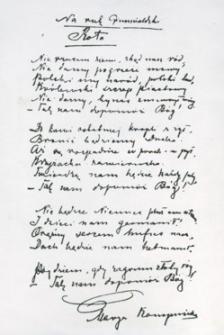 Na rok Grunwaldzki
Rota
Nie rzucim ziemi, skąd nasz ród,
Nie damy pogrześć mowy
Polski my naród, polski lud,
Królewski szczep Piastowy
Nie damy, by nas zniemczył wróg
— Tak nam dopomóż Bóg!
Do krwi ostatniej kropli z żył
Bronić będziemy Ducha
Aż się rozpadnie w proch i w pył
Krzyżacka zawierucha.
Twierdzą nam będzie każdy próg
— Tak nam dopomóż Bóg!
Nie będzie Niemiec pluł nam w twarz
I dzieci nam germanił.
Orężny hufiec nasz,
Duch będzie nam hetmanił.
Pójdziem, gdy złoty róg
— Tak nam dopomóż Bóg!
Marya Konopnicka